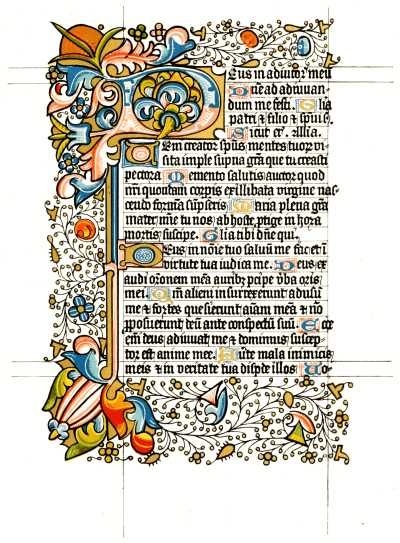 Deus in adiutor meū
Dñe ad adiuuan
dum me festī. Glia
patri & filio & spūi s̄.
Sicut er̄. Allīa.
Veni creator spūs mentes tuor̄ vi
sita imple supna grā que tu creasti
pectora. Memento salutis auctor quod
nr̄i quondam corpis ex illibata virgine nas
cendo formā sūpseris. Maria plena grā
mater mīe tu nos ab hoste ptige in hora
mortis suscipe. Glia tibi dn̄e qui.
Deus in noīe tuo saluū me fac et ī
virtute tua iudica me. Deus ex
audi orōnem meā aurib; pcipe vba oris
mei. Qm̄ alieni insurrexerunt adusū
me & fortes quesierunt aīam meā & nō
pposuerunt deū ante conspectū suū. Ecce
em̄ deus adiuuat me & dominus suscep
tor est anime mee. Auerte mala inimicis
meis & in veritate tua dispde illos. Vo